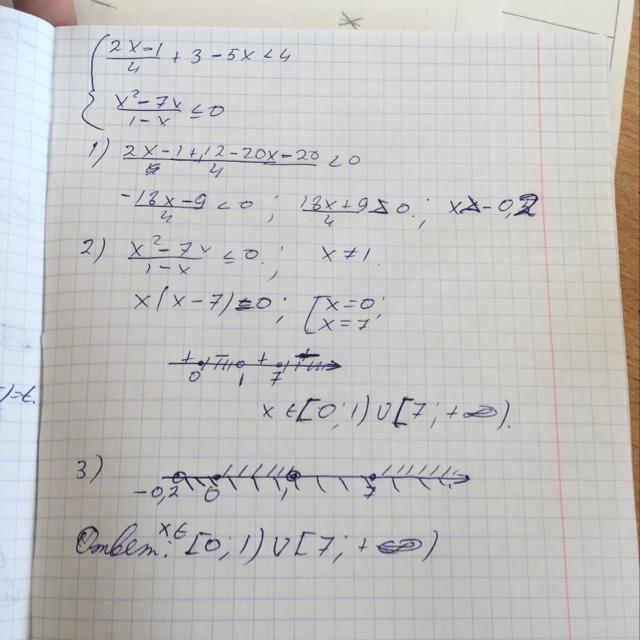 { (2x-1)/4 + 3 - 5x < 4
(x²-7x)/(1-x) ≤ 0
1) (2x-1+12-20x-20)/4 < 0
(-18x-9)/4 < 0; (18x+9)/4 > 0; x > -0,2
2) (x²-7x)/(1-x) ≤ 0; x ≠ 1
x(x-7)=0; [x=0;
x=7
+ - + -
0 1 7
x ∈ [0; 1) ∪ [7; +∞).
3)
-0,2 0 1 7
Ответ: x∈ [0; 1) ∪ [7; +∞)
)=7.